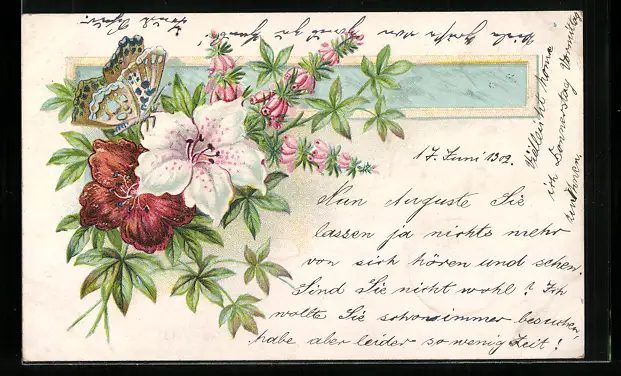 17. Juni 1902.
Nun Auguste Sie
lassen ja nichts mehr
von sich hören und sehen.
Sind Sie nicht wohl? Ich
wollte Sie schon immer besuchen,
habe aber leider so wenig Zeit!
Vielleicht kome
ich Donnerstag Vormittag
zu Ihnen.
Viele Grüße von
Haus zu Haus!